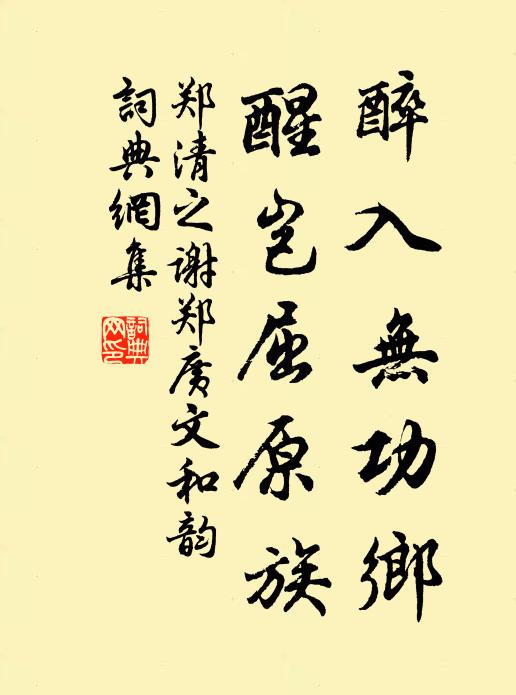 醉入無功鄉
醒岂屈原族
郑清之谢郑广文和韵
詞典網集
詞典网印